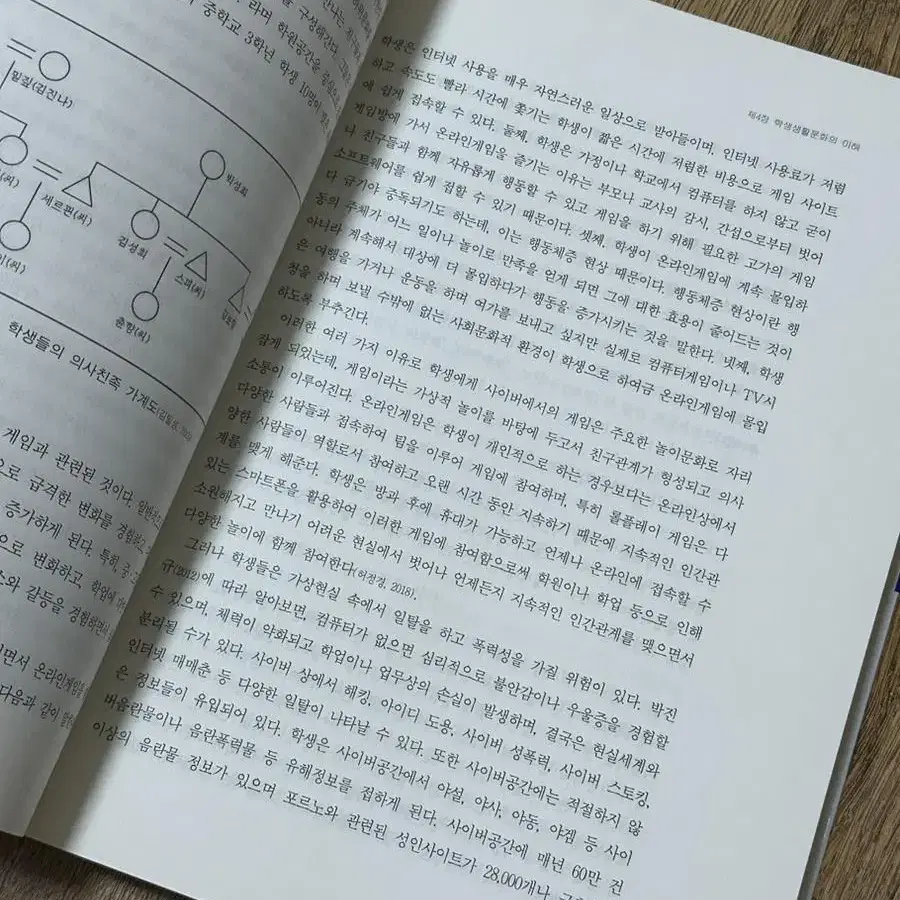 구성해간다.
라며 학원공간을
중학교 3학년 학생 10명이
밀짚(김진나)
박성희
세르핀(씨)
김성희
스피(씨)
이(씨)
춘향(씨)
학생들의 의사친족 가계도
게임과 관련된 것이다.
으로 급격한 변화를 경험하고,
증가하게 된다. 특히, 중·고
으로 변화하고, 학업에
소와 갈등을 경험하면서
이면서 온라인게임을
다음과 같이
제4장 학생생활문화의 이해
학생은 인터넷 사용을 매우 자연스러운 일상으로 받아들이며, 인터넷 사용료가 저렴
하고 속도도 빨라 시간에 쫓기는 학생이 짧은 시간에 저렴한 비용으로 게임 사이트
에 쉽게 접속할 수 있다. 둘째, 학생은 가정이나 학교에서 컴퓨터를 하지 않고 굳이
게임방에 가서 온라인게임을 즐기는 이유는 부모나 교사의 감시, 간섭으로부터 벗어
나 친구들과 함께 자유롭게 행동할 수 있고 게임을 하기 위해 필요한 고가의 게임
소프트웨어를 쉽게 접할 수 있기 때문이다. 셋째, 학생이 온라인게임에 계속 몰입하
다 급기야 중독되기도 하는데, 이는 행동체증 현상 때문이다. 행동체증 현상이란 행
동의 주체가 어느 일이나 놀이로 만족을 얻게 되면 그에 대한 효용이 줄어드는 것이
아니라 계속해서 대상에 더 몰입하다가 행동을 증가시키는 것을 말한다. 넷째, 학생
은 여행을 가거나 운동을 하며 여가를 보내고 싶지만 실제로 컴퓨터게임이나 TV시
청을 하며 보낼 수밖에 없는 사회문화적 환경이 학생으로 하여금 온라인게임에 몰입
하도록 부추긴다.
이러한 여러 가지 이유로 학생에게 사이버에서의 게임은 주요한 놀이문화로 자리
잡게 되었는데, 게임이라는 가상적 놀이를 바탕에 두고서 친구관계가 형성되고 의사
소통이 이루어진다. 온라인게임은 학생이 개인적으로 하는 경우보다는 온라인상에서
다양한 사람들과 접속하여 팀을 이루어 게임에 참여하며, 특히 롤플레이 게임은 다
양한 사람들이 역할로서 참여하고 오랜 시간 동안 지속하기 때문에 지속적인 인간관
계를 맺게 해준다. 학생은 방과 후에 휴대가 가능하고 언제나 온라인에 접속할 수
있는 스마트폰을 활용하여 이러한 게임에 참여함으로써 학원이나 학업 등으로 인해
소원해지고 만나기 어려운 현실에서 벗어나 언제든지 지속적인 인간관계를 맺으면서
다양한 놀이에 함께 참여한다(허정경, 2018).
그러나 학생들은 가상현실 속에서 일탈을 하고 폭력성을 가질 위험이 있다. 박진
규(2012)에 따라 알아보면, 컴퓨터가 없으면 심리적으로 불안감이나 우울증을 경험할
수 있으며, 체력이 약화되고 학업이나 업무상의 손실이 발생하며, 결국은 현실세계와
분리될 수가 있다. 사이버 상에서 해킹, 아이디 도용, 사이버 성폭력, 사이버 스토킹,
인터넷 매매춘 등 다양한 일탈이 나타날 수 있다. 또한 사이버공간에는 적절하지 않
은 정보들이 유입되어 있다. 학생은 사이버공간에서 야설, 야사, 야동, 야겜 등 사이
버음란물이나 음란폭력물 등 유해정보를 접하게 된다. 사이버공간에 매년 60만 건
이상의 음란물 정보가 있으며 포르노와 관련된 성인사이트가 28,000개나